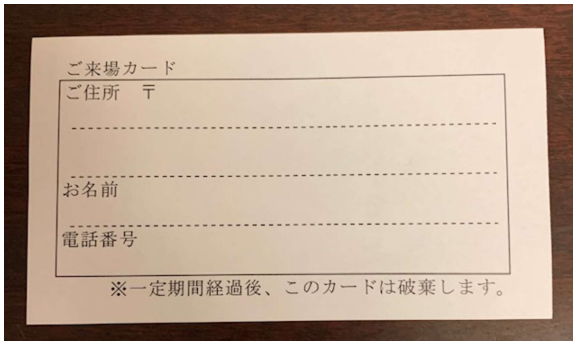 ご来場カード
ご住所　〒
お名前
電話番号
※一定期間経過後、このカードは破棄します。